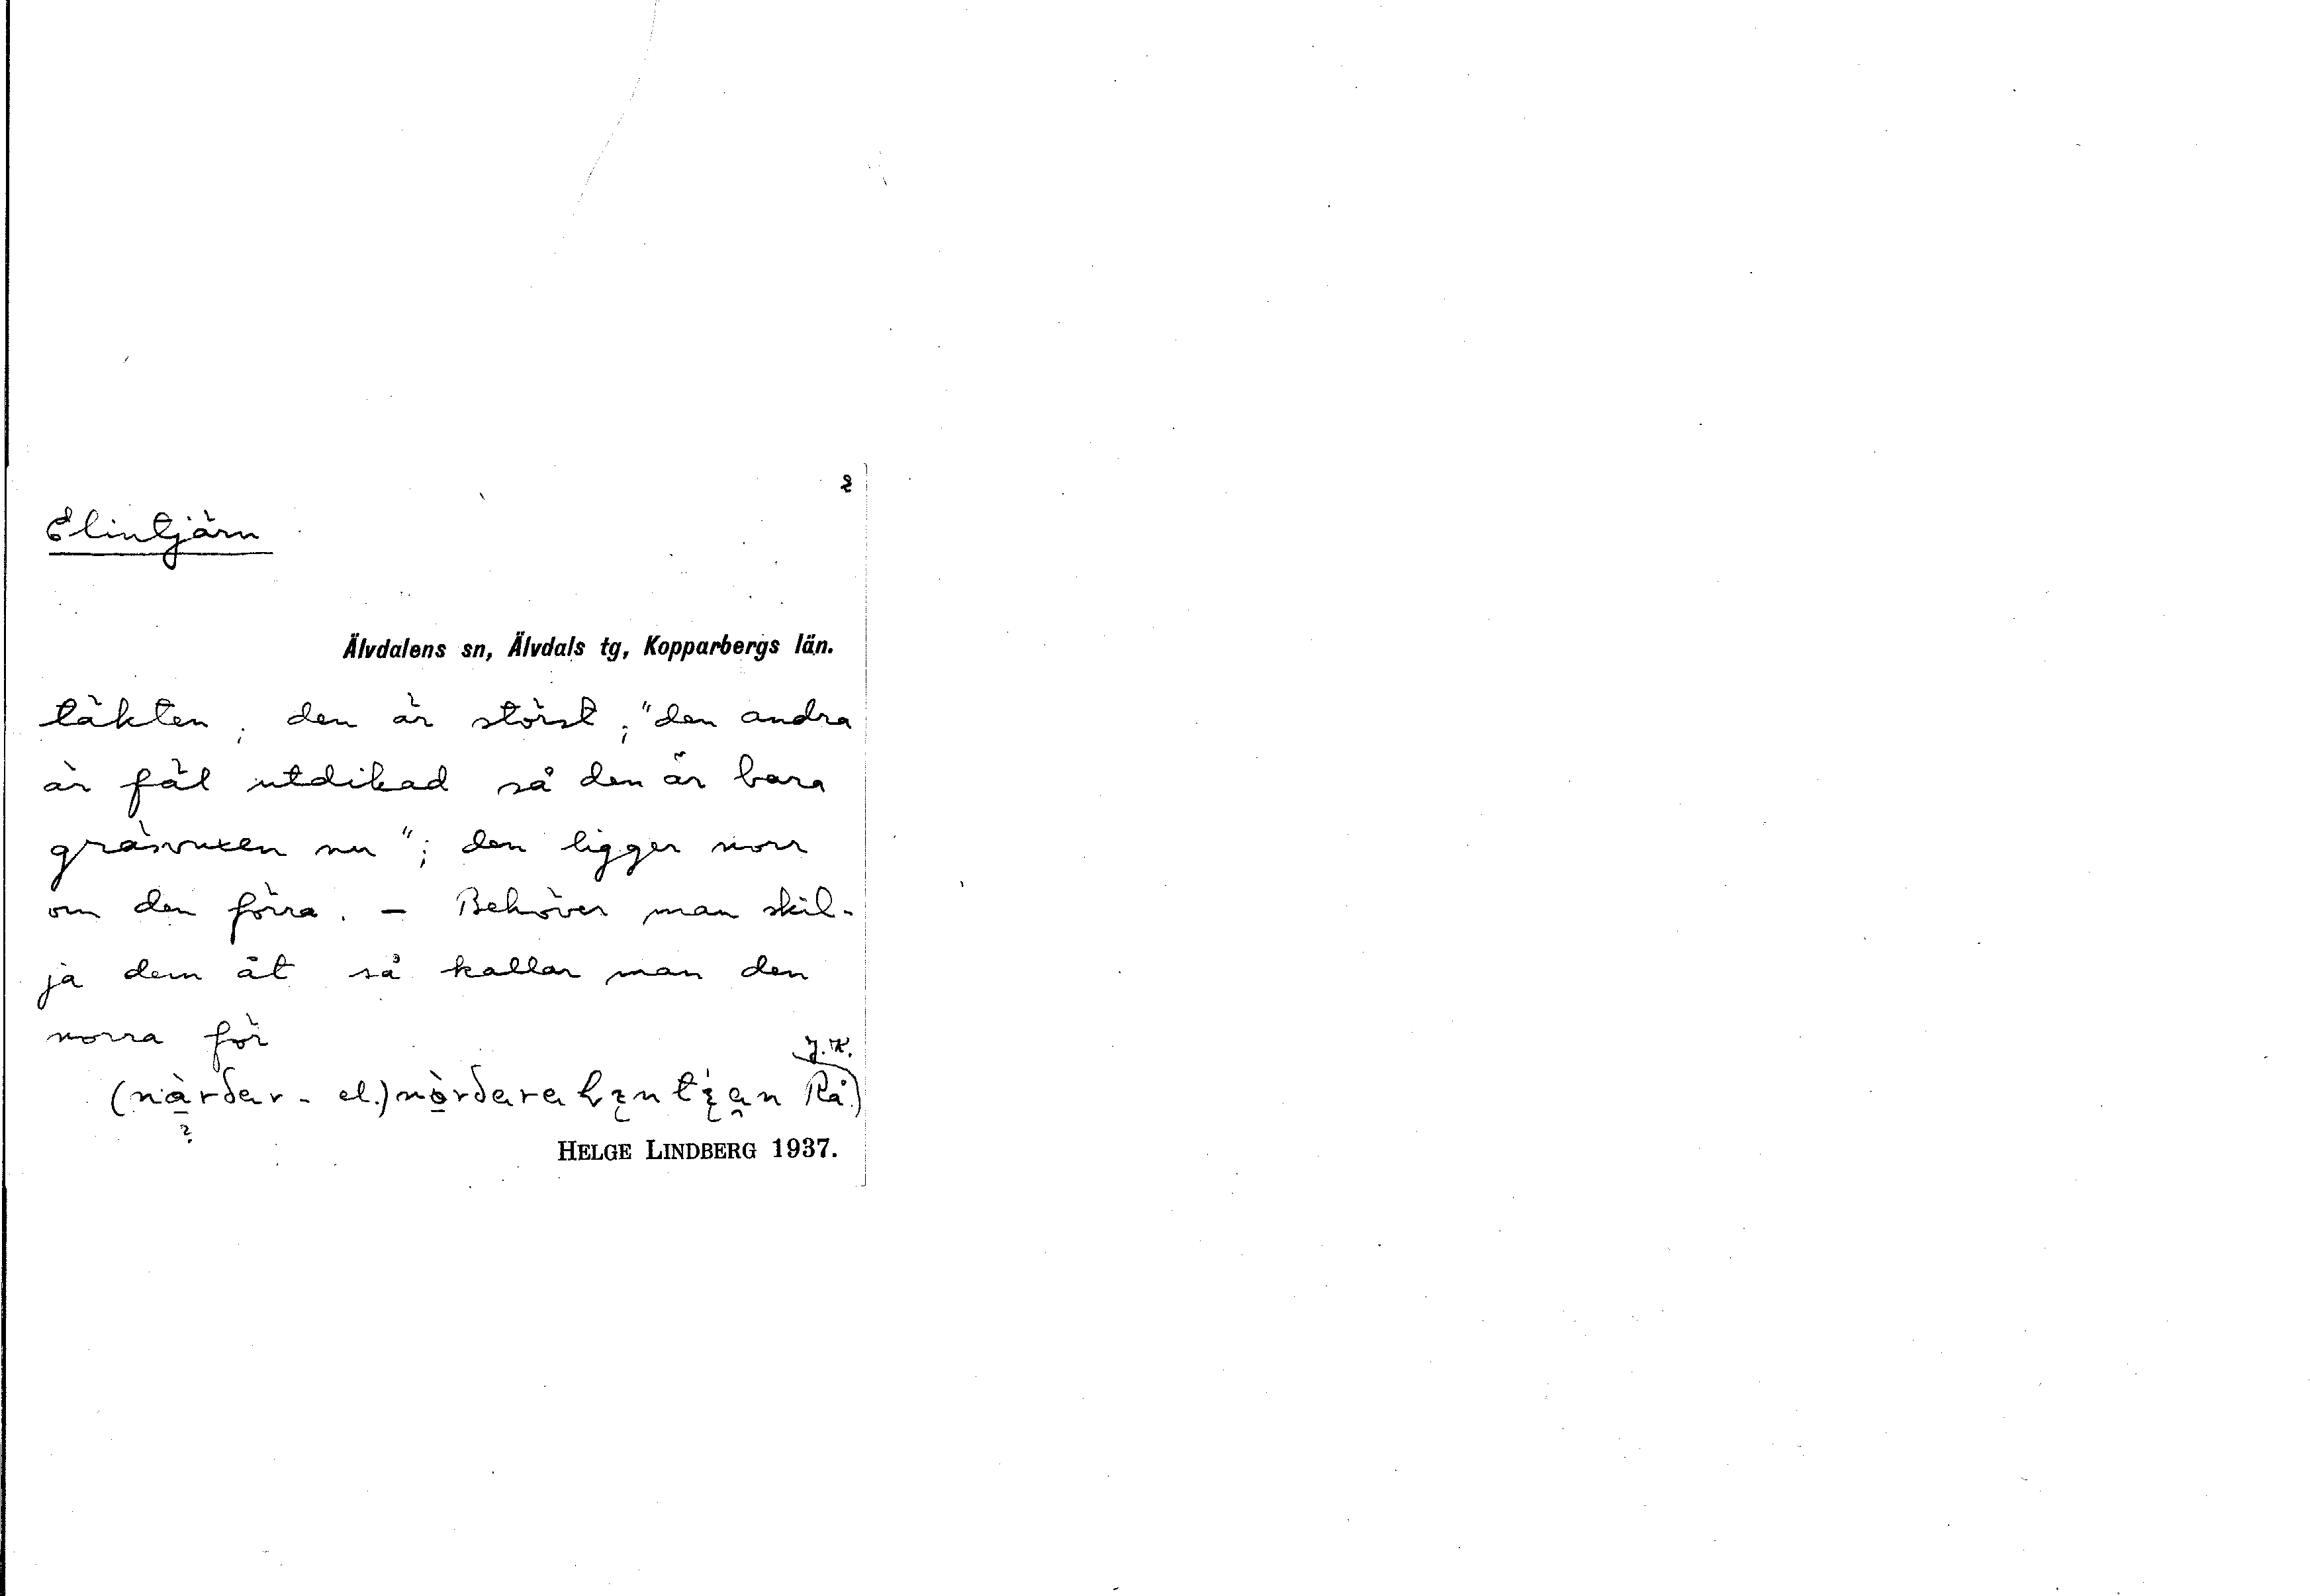 2
Elintjärn
Älvdalens sn, Älvdals tg, Kopparbergs län.
täkten; den är störst; "den andra
är fäl utdikad så den är bara
gräsvuxen nu"; den ligger norr
om den förra. – Behöver man skil-
ja dem åt så kallar man den
norra för
J.K.
(nàrdar- el.) Rå.)
?
HELGE LINDBERG 1937.